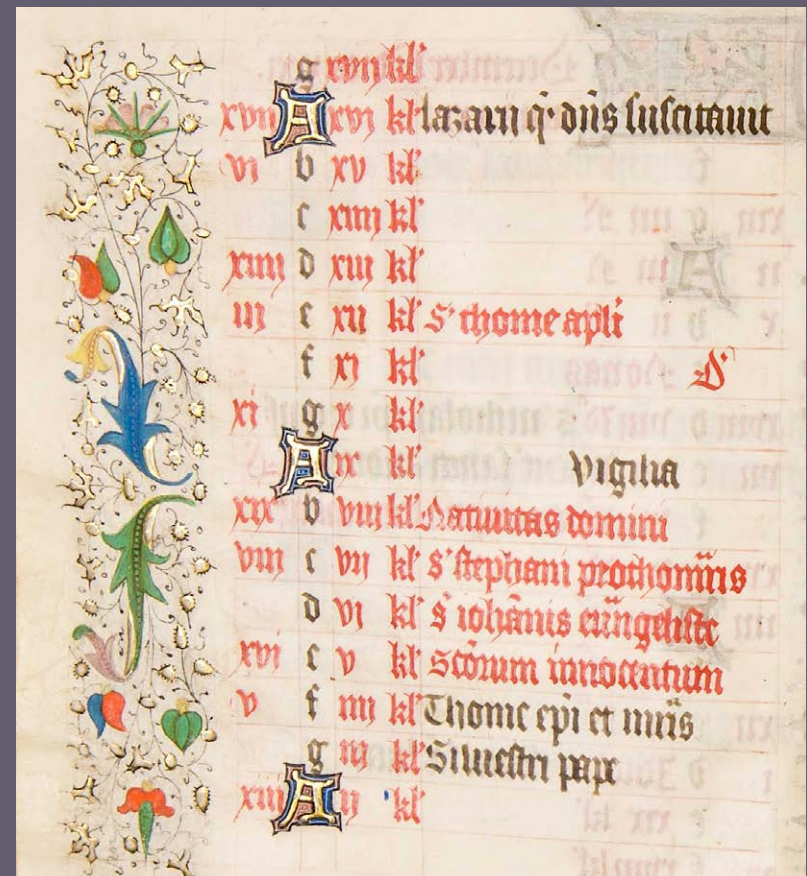 g xvij kl'
xvij A xvj kl' lazari q' dn̄s suscitauit
vi b xv kl'
c xiiij kl'
xiiij d xiij kl'
iij e xij kl' s' thome apl̄i
f xj kl' D'
xi g x kl'
A ix kl' vigilia
xix b viij kl' Natiuitas domini
viij c vij kl' s' stephani prothom̄ris
d vj kl' s' ioh̄anis eūngeliste
xvi e v kl' scōrum innocentum
v f iiij kl' Thome ep̄i et m̄ris
g iij kl' Siluestri pape
xiij A ij kl'